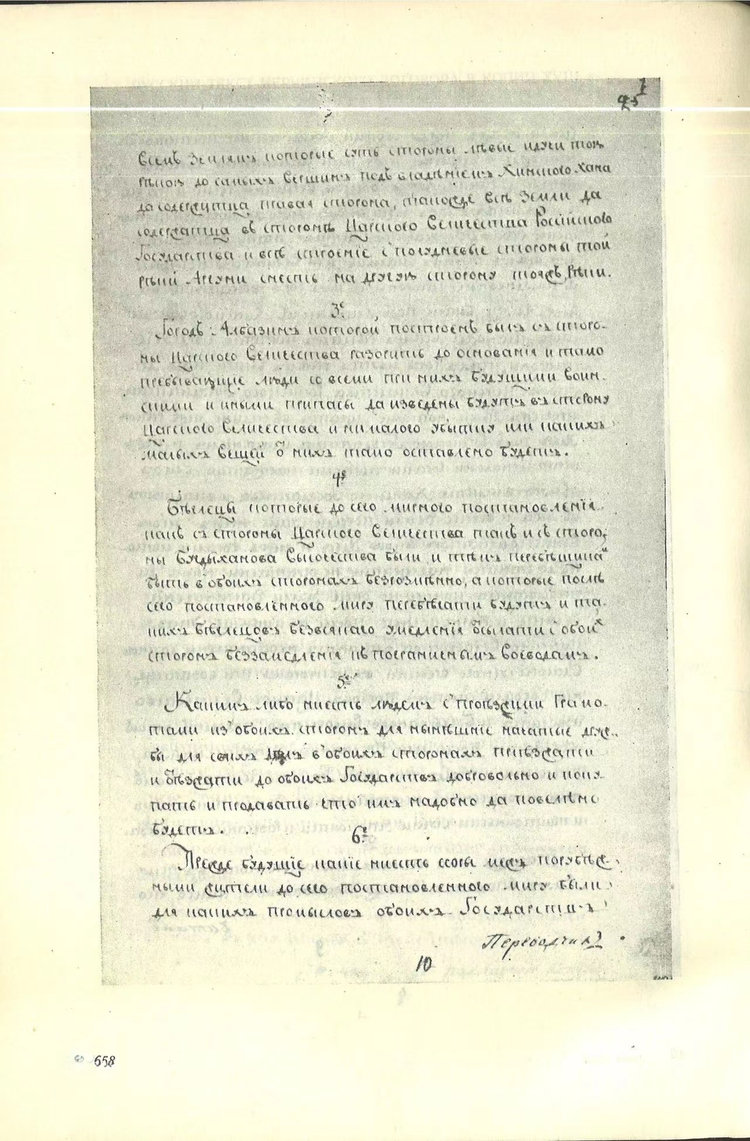 25
всемъ землямъ которые суть стороны лѣвые идучи тою
рѣкою до самыхъ вершинъ подъ владѣниемъ Хинского Хана
да содержитца правая сторона, такожде всѣ Земли да
содержатца въ сторонѣ Царского Величества Росийского
Государства и все строение с полудневые стороны той
рѣки Аргуни снесть на другую сторону тояжъ рѣки.
3е
Городъ Албазинъ которой построенъ былъ съ сторо-
ны Царского Величества разорить до основания и тамо
пребывающие люди со всеми при нихъ будущими воин-
скими и иными припасы да изведены будутъ въ сторону
Царского Величества и ни малого убытка или какихъ
малыхъ вещей ѿ нихъ тамо оставлено будетъ.
4е
Бѣглецы которые до сего мирного постановления
какъ съ стороны Царского Величества такъ и съ сторо-
ны Бугдыханова Высочества были и тѣмъ перебѣщикаⷨ
быть в обоихъ сторонахъ безрозмѣнно, а которые послѣ
сего постановленного миру перебѣгати будутъ и та-
кихъ бѣглецовъ безвсякого умедления ѿсылати с обоиⷯ
сторонъ беззамедления къ пограничнымъ воеводамъ.
5е
Какимъ либо ни есть людемъ с проѣзжими грамо-
тами из обоихъ сторонъ для нынѣшние начатые друж-
бы для своихъ дѣлъ в обоихъ сторонахъ приѣзжати
и ѿѣзжати до обоихъ Государствъ добровольно и поку-
пать и продавать что имъ надобно да повелѣно
будетъ.
6е
Прежде будущие какие ни есть ссоры межъ порубеж-
ными жители до сего постановленного миру были
для какихъ промысловъ обоихъ Государствъ
Переводчикъ
10
658